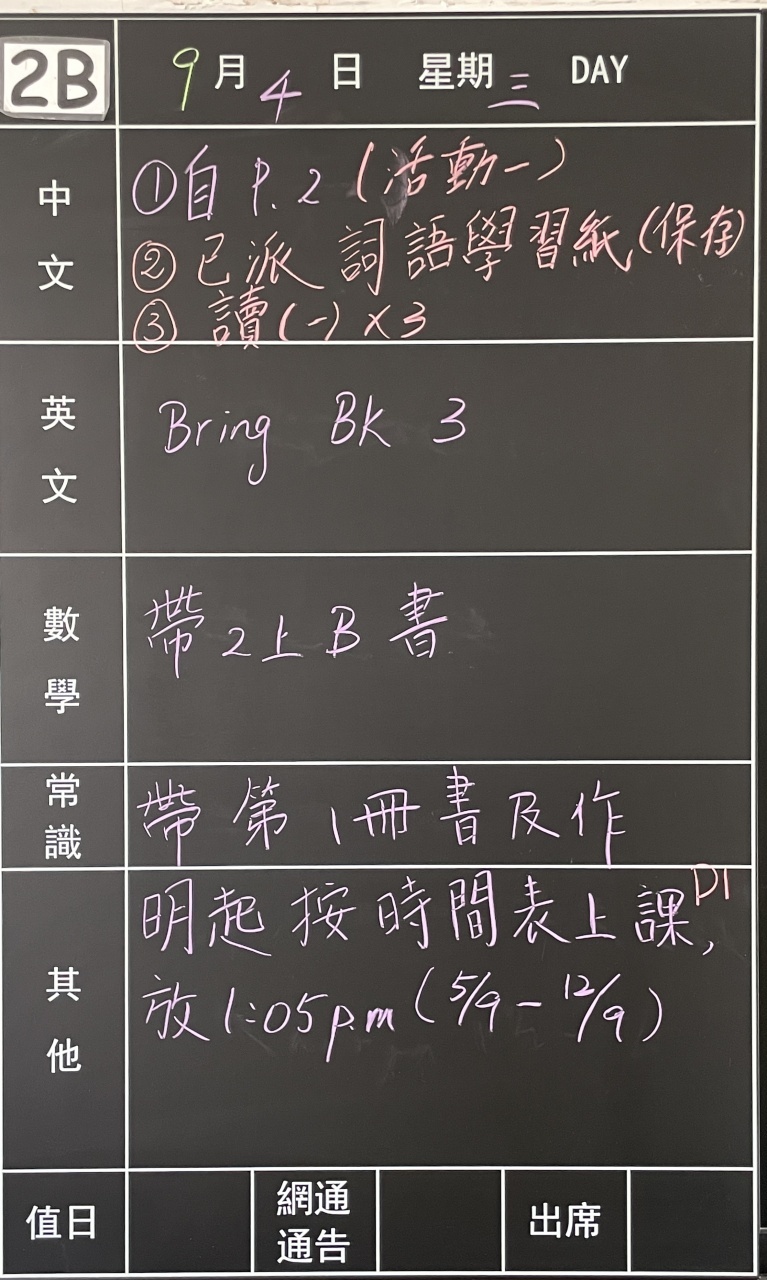 2B 9月4日 星期三 DAY
中文
①自 P.2 (活動一)
②已派 詞語學習紙(保存)
③ 讀(一)×3
英文
Bring BK 3
數學
帶2上B書
常識
帶第1冊書及作
其他
明起按時間表上課, D1
放1:05p.m (5/9-12/9)
值日 網通通告 出席